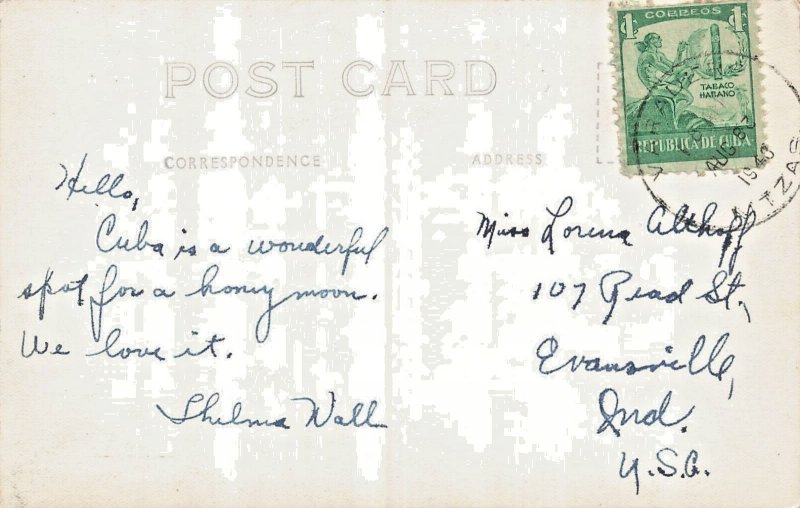 POST CARD
CORRESPONDENCE
ADDRESS
1 CORREOS 1
TABACO
HABANO
REPUBLICA DE CUBA
AUG 8
1940
Hello,
Cuba is a wonderful
spot for a honey moon.
We love it.
Thelma Wall
Miss Lorena Althoff
107 Read St.,
Evansville,
Ind.
U.S.A.